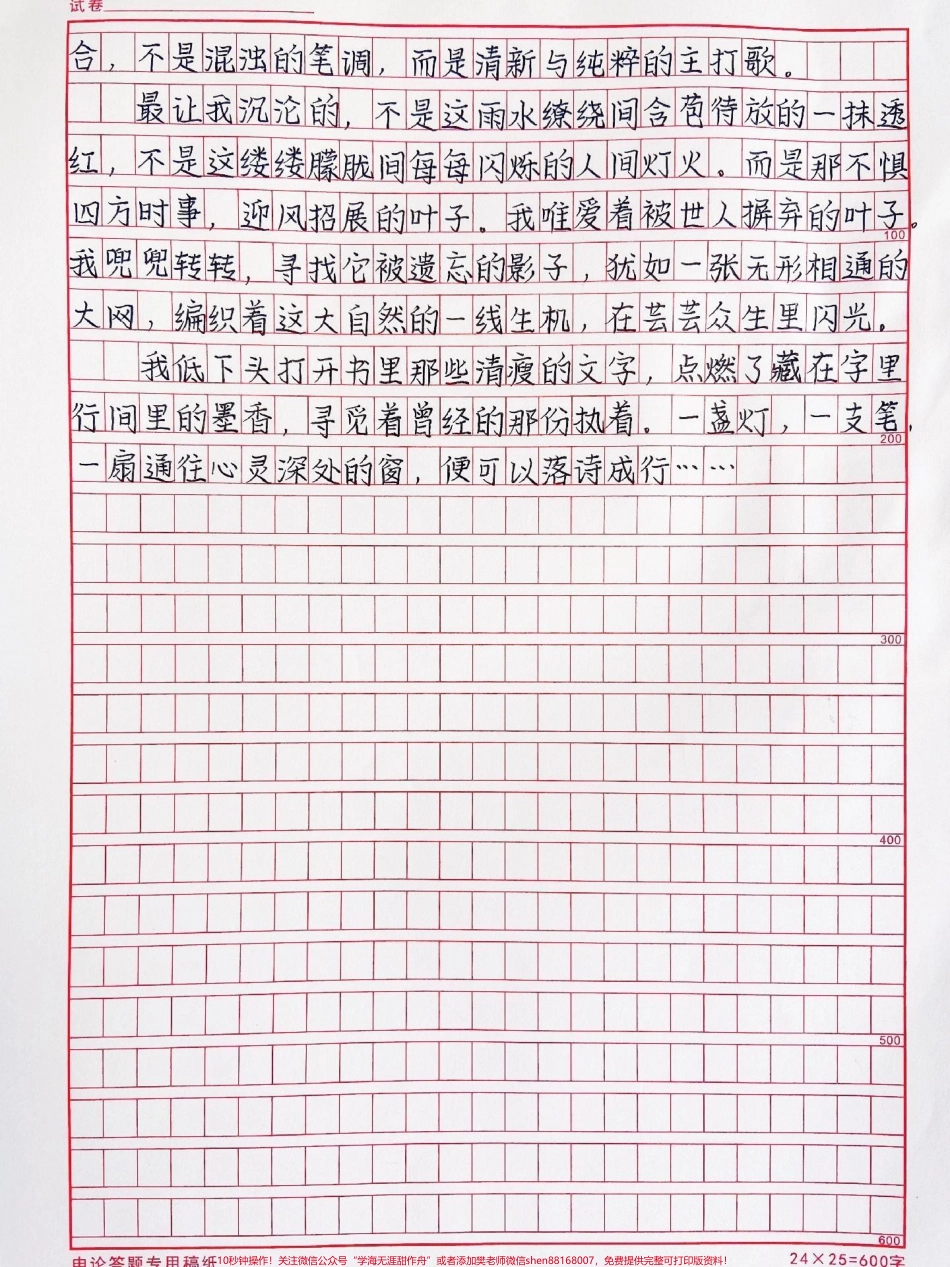 试卷
合，不是混浊的笔调，而是清新与纯粹的主打歌。
最让我沉沦的，不是这雨水缭绕间含苞待放的一抹透
红，不是这缕缕朦胧间每每闪烁的人间灯火。而是那不惧
四方时事，迎风招展的叶子。我唯爱着被世人摒弃的叶子。
100
我兜兜转转，寻找它被遗忘的影子，犹如一张无形相通的
大网，编织着这大自然的一线生机，在芸芸众生里闪光。
我低下头打开书里那些清瘦的文字，点燃了藏在字里
行间里的墨香，寻觅着曾经的那份执着。一盏灯，一支笔，
200
一扇通往心灵深处的窗，便可以落诗成行……
300
400
500
600
申论答题专用稿纸10秒钟操作！关注微信公众号“学海无涯甜作舟”或者添加樊老师微信shen88168007，免费提供完整可打印版资料！ 24×25=600字